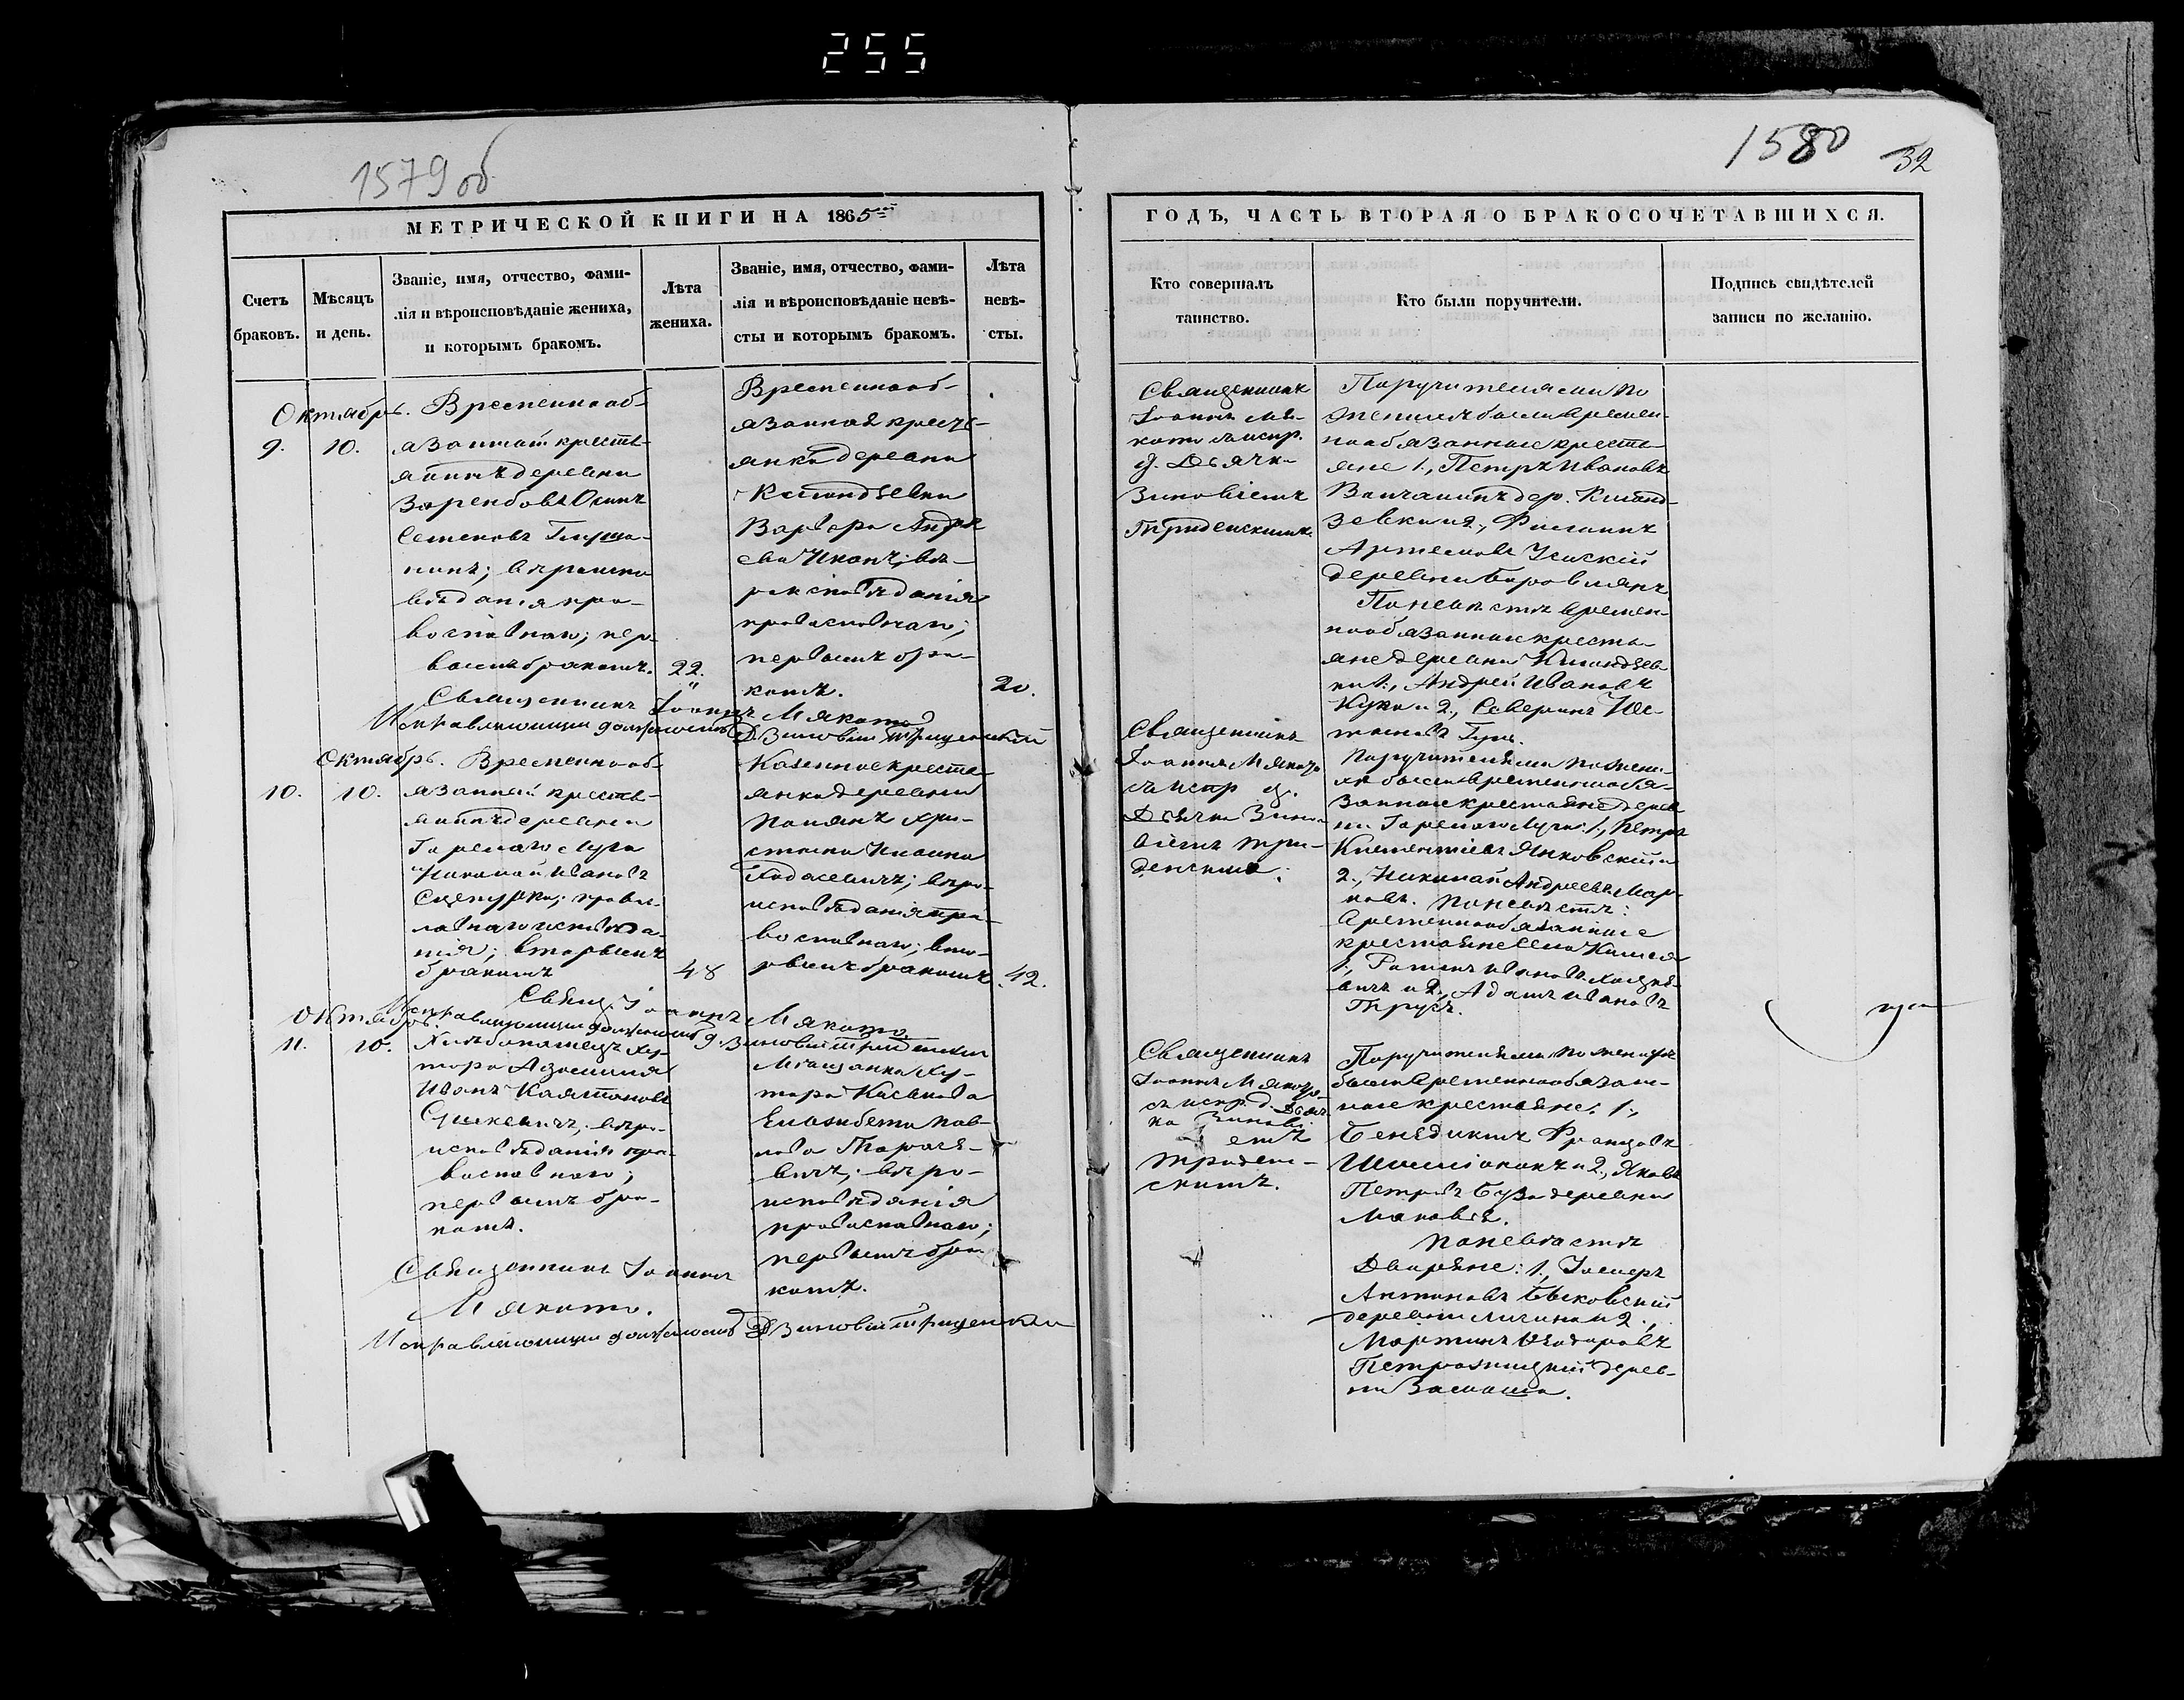 255
1579 об
1580
32
МЕТРИЧЕСКОЙ КНИГИ НА 1865
Счетъ браковъ.
Мѣсяцъ и день.
Званіе, имя, отчество, фами-
лія и вѣроисповѣданіе жениха,
и которымъ бракомъ.
Лѣта жениха.
Званіе, имя, отчество, фами-
лія и вѣроисповѣданіе невѣ-
сты и которымъ бракомъ.
Лѣта невѣ-
сты.
Октябрь.
9.
10.
Временнооб-
язанный кресть-
янинъ деревни
Семеновъ
нинъ; вѣроиспо-
вѣданія пра-
вославнаго; пер-
вымъ бракомъ.
22.
Временнооб-
язанная кресть-
янка деревни
Варвара Андре
ева вѣ-
роисповѣданія
православнаго;
первымъ бра-
комъ.
20.
Священникъ Іоаннъ Мякото
Исправляющій должность Д Зиновій Триденскій
Октябрь.
10.
10.
Временнооб-
язанный кресть-
янинъ деревни
Горелаго Луга
Николай Ивановъ
правос-
лавнаго исповѣда-
нія; вторымъ
бракомъ
48
Казенная кресть
янка деревни
хри-
стина
вѣро-
исповѣданія пра-
вославнаго; вто-
рымъ бракомъ
42.
Свящ. Іоаннъ Мякото
Исправляющій должность д. Зиновій Триденскій
Октябрь.
11.
10.
Ху-
тора
Иванъ Каятановъ
вѣро-
исповѣданія пра-
вославнаго;
первымъ бра-
комъ.
Мѣщанка ху-
тора
Елизабета Пав-
лова Тарасе-
вичъ; вѣро-
исповѣданія
православнаго;
первымъ бра
комъ.
Священникъ Іоаннъ
Мякото.
Исправляющій должность Д Зиновій Триденскій
ГОДЪ, ЧАСТЬ ВТОРАЯ О БРАКОСОЧЕТАВШИХСЯ.
Кто совершалъ
таинство.
Кто были поручители.
Подпись свидѣтелей
записи по желанію.
Священникъ
Іоаннъ Мя-
кото съ испр.
д. Дьячка
Зиновіемъ
Триденскимъ.
Поручителями по
женихѣ были времен-
нообязанные кресть-
яне 1., Петръ Ивановъ
дер.
и 2., Филипъ
Артемовъ
деревни Боровлянъ
По невѣстѣ времен-
нообязанные кресть-
яне деревни
1., Андрей Ивановъ
и 2., Северинъ
Священникъ
Іоаннъ Мякото
съ испр д.
Дьячка Зино-
віемъ Три-
денскимъ.
Поручителями по жени-
хѣ были временнообя-
занные крестьяне дерев
ни Горелаго Луга: 1., Петръ
Климентіевъ Янковскій и
2., Николай Андреевъ Мар-
ковъ. По невѣстѣ:
временнообязанные
крестьяне села
1., Романъ Ивановъ
и 2., Адамъ Ивановъ
Священникъ
Іоаннъ Мякото
съ испр. д. Дьяч.
ка Зинові
емъ
Триден-
скимъ.
Поручителями по женихѣ
были временнообязан-
ные крестьяне: 1.,
Бенедиктъ Францовъ
и 2., Яковъ
Петровъ Буза деревни
По невѣстѣ
Дворяне: 1.,
Антоновъ Быковскій
деревни и 2.,
Мартинъ Ѳеодоровъ
дерев-
ни